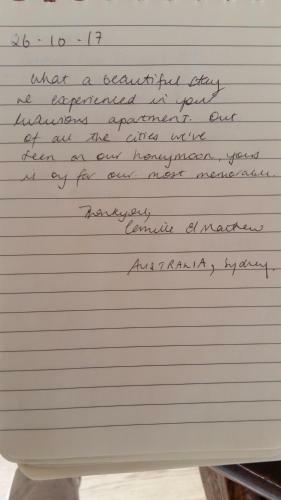 26-10-17
What a beautiful stay
we experienced in your
luxurious apartment. Out
of all the cities we've
been on our honeymoon, yours
is by far our most memorable.
Thankyou,
& Mathew
AUSTRALIA, Sydney.